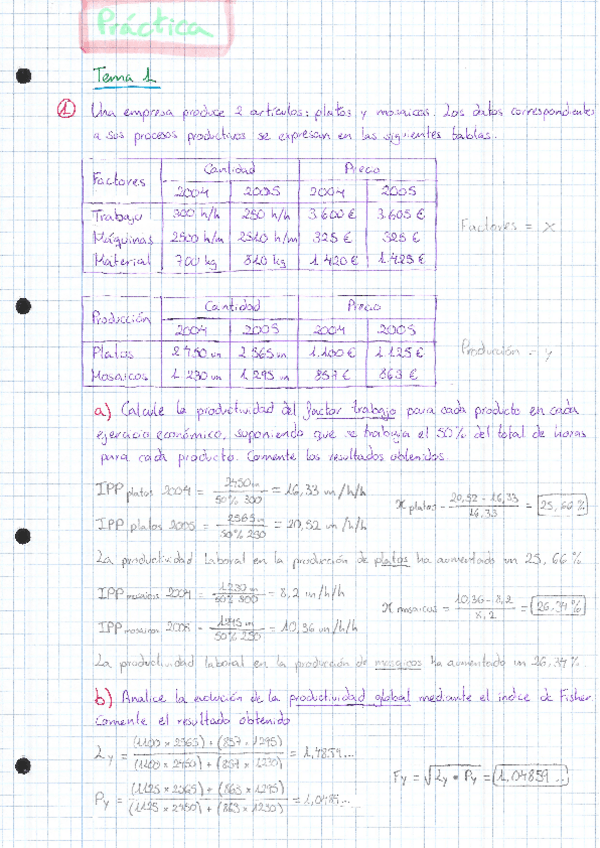 Práctica
Tema 1
① Una empresa produce 2 artículos: platos y mosaicos. Los datos correspondientes
a sus procesos productivos se expresan en las siguientes tablas.
Factores Cantidad Precio
2004 2005 2004 2005
Trabajo 300 h/h 250 h/h 3.600 € 3.605 €
Máquinas 2500 h/m 2510 h/m 325 € 325 €
Material 700 kg 810 kg 1.420 € 1.425 €
Factores = x
Producción Cantidad Precio
2004 2005 2004 2005
Platos 2450 un 2565 un 1.100 € 1.125 €
Mosaicos 1.230 un 1.295 un 857 € 863 €
Producción = y
a) Calcule la productividad del factor trabajo para cada producto en cada
ejercicio económico, suponiendo que se trabaja el 50% del total de horas
para cada producto. Comente los resultados obtenidos.
IPP platos 2004 = 2450 un / 50% 300 = 16,33 un/h/h
IPP platos 2005 = 2565 un / 50% 250 = 20,52 un/h/h
π platos = 20,52 - 16,33 / 16,33 = 25,66 %
La productividad laboral en la producción de platos ha aumentado un 25,66 %
IPP mosaicos 2004 = 1230 un / 50% 300 = 8,2 un/h/h
IPP mosaicos 2005 = 1295 un / 50% 250 = 10,36 un/h/h
π mosaicos = 10,36 - 8,2 / 8,2 = 26,34 %
La productividad laboral en la producción de mosaicos ha aumentado un 26,34 %.
b) Analice la evolución de la productividad global mediante el índice de Fisher.
Comente el resultado obtenido
Ly = (1100 × 2565) + (857 × 1295) / (1100 × 2450) + (857 × 1230) = 1,4859...
Py = (1125 × 2565) + (863 × 1295) / (1125 × 2450) + (863 × 1230) = 1,0485...
Fy = √Ly • Py = 1,04859...